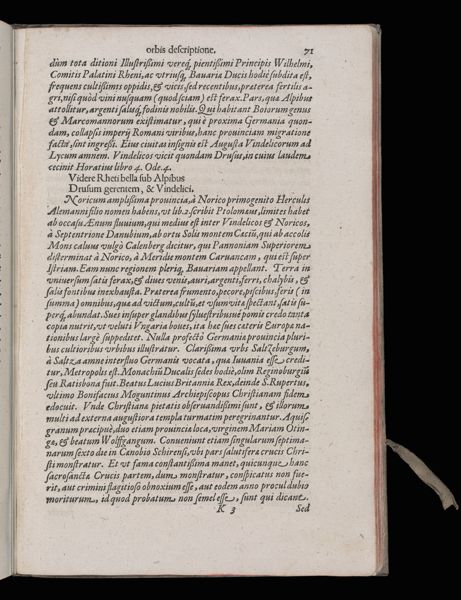 orbis descriptione. 71
dùm tota ditioni Illustrißimi verèq; pientißimi Principis Wilhelmi,
Comitis Palatini Rheni, ac vtriusq; Bauariæ Ducis hodiè subdita est,
frequens cultißimis oppidis, & vicis, sed recentibus, præterea fertilis a-
gri, nisi quòd vini nusquam (quod sciam) est ferax. Pars, qua Alpibus
attollitur, argenti salisq; fodinis nobilis. Qui habitant Boiorum genus
& Marcomannorum existimatur, qui è proxima Germania quon-
dam, collapsis imperij Romani viribus, hanc prouinciam migratione
facta, sunt ingreßi. Eius ciuitas insignis est Augusta Vindelicorum ad
Lycum amnem. Vindelicos vicit quondam Drusus, in cuius laudem
cecinit Horatius libro 4. Ode. 4.
Videre Rheti bella sub Alpibus
Drusum gerentem, & Vindelici.
Noricum amplißima prouincia, à Norico primogenito Herculis
Alemanni filio nomen habens, vt lib. 2. scribit Ptolomeus, limites habet
ab occasu Ænum fluuium, qui medius est inter Vindelicos & Noricos,
à Septentrione Danubium, ab ortu Solis montem Cæciũ, qui ab accolis
Mons caluus vulgò Calenberg dicitur, qui Pannoniam Superiorem
disterminat à Norico, à Meridie montem Caruancam, qui est super
Istriam. Eam nunc regionem pleriq; Bauariam appellant. Terra in
vniuersum satis ferax, & diues venis, auri, argenti, ferri, chalybis, &
salis fontibus inexhausta. Præterea frumento, pecore, piscibus, feris (in
summa) omnibus, quæ ad victum, cultũ, et vsum vitæ spectant, satis su-
perq́; abundat. Sues insuper glandibus syluestribusue pomis credo tanta
copia nutrit, vt veluti Vngaria boues, ita hæc sues cæteris Europæ na-
tionibus largè suppeditet. Nulla profectò Germaniæ prouincia pluri-
bus cultioribus vrbibus illustratur. Clarißima vrbs Saltzeburgum,
à Saltza amne interfluo Germanis vocata, quæ Iuuauia esse credi-
tur, Metropolis est. Monachiũ Ducalis sedes hodiè, olim Reginoburgiũ
seu Ratisbona fuit. Beatus Lucius Britanniæ Rex, deinde S. Rupertus,
vltimò Bonifacius Moguntinus Archiepiscopus Christianam fidem
edocuit. Vnde Christianæ pietatis obseruandißimi sunt, & illorum
multi ad externa augustiora templa turmatim peregrinantur. Aquis-
granum præcipuè, duo etiam prouinciæ loca, virginem Mariam Otin-
gæ, & beatum Wolffgangum. Conueniunt etiam singularum septima-
narum sexto die in Cœnobio Schirensi, vbi pars salutiferæ crucis Chri-
sti monstratur. Et vt fama constantißima manet, quicunque hanc
sacrosanctæ Crucis partem, dum monstratur, conspicatus non fue-
rit, aut crimini flagitioso obnoxium esse, aut eodem anno procul dubio
moriturum, id quod probatum non semel esse, sunt qui dicant.
K 3 Sed